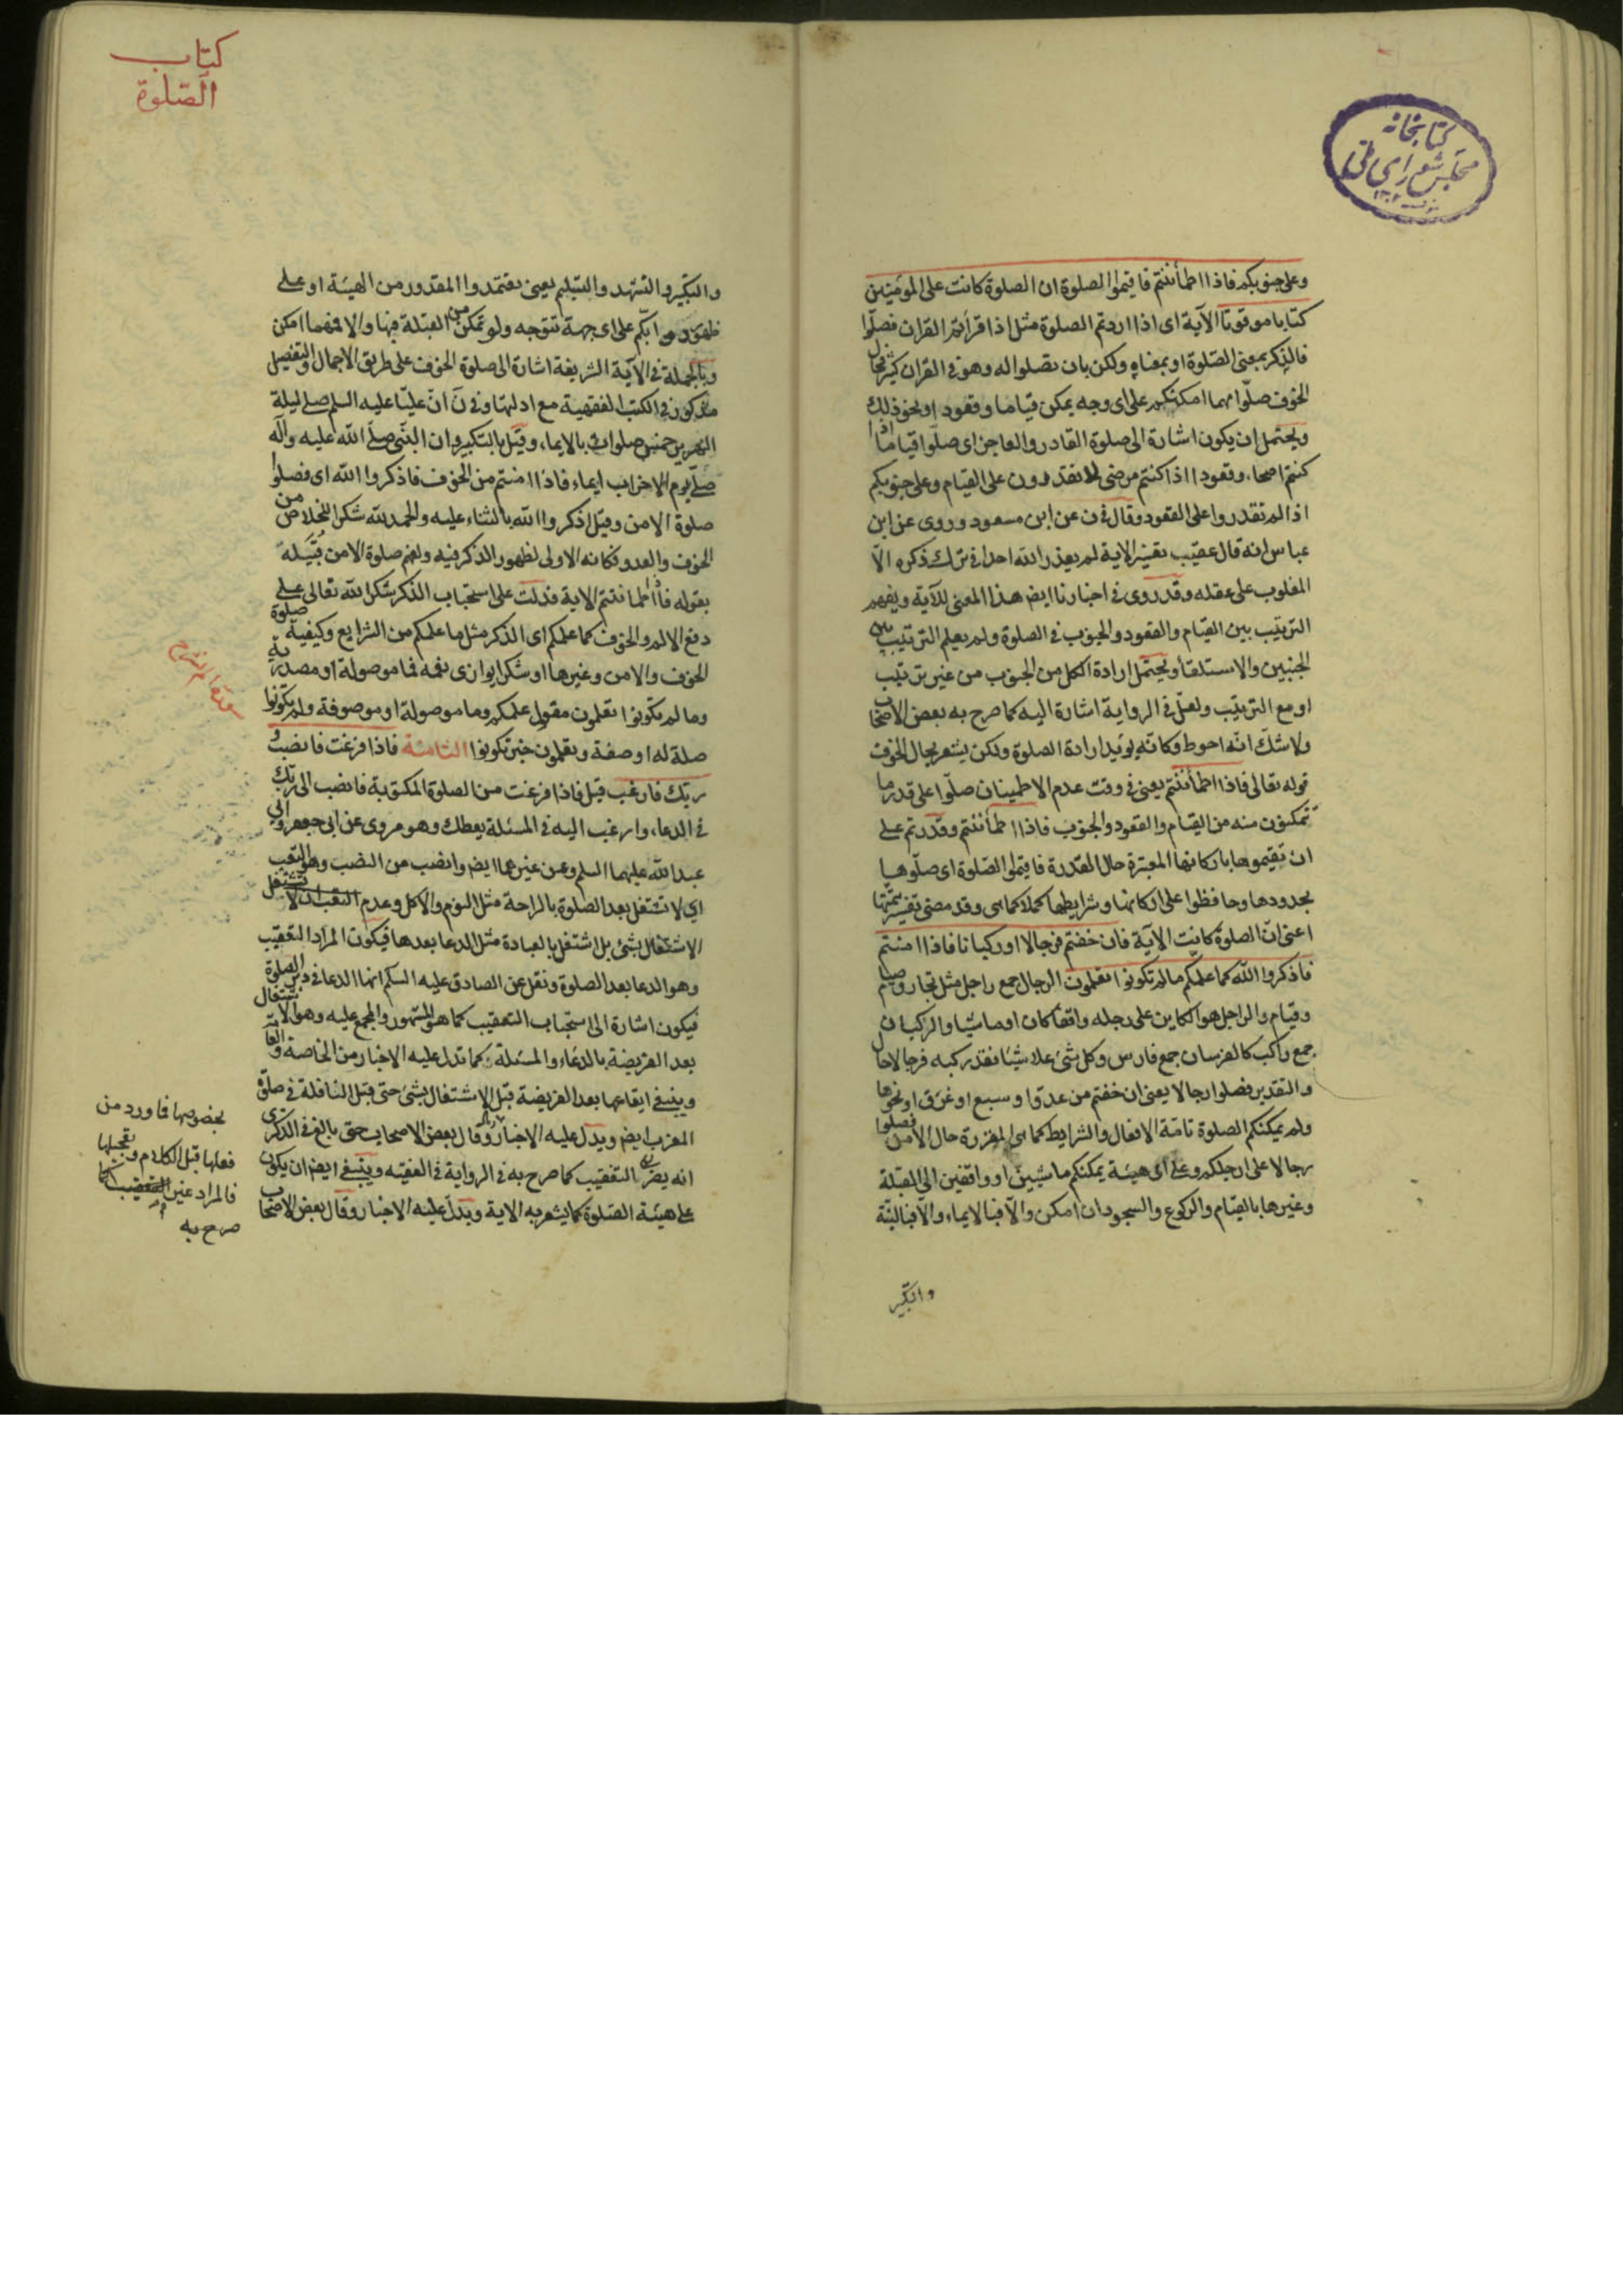 كتابخانه
مجلس شوراى ملى
وعلى جنوبكم فاذا اطمأننتم فاقيموا الصلوة ان الصلوة كانت على المؤمنين
كتابا موقوتا الآية اى اذا اردتم الصلوة مثل اذا قرأتم القران فصلّوا
فالذكر بمعنى الصّلوة او بمعناه ولكن بان تصلوا له وهو فى القران كثير فحال
الخوف صلّوا مهما امكنكم على اى وجه يمكن قياما وقعودا ونحو ذلك
ويحتمل ان يكون اشارة الى صلوة القادر والعاجز اى صلّوا قياما اذا
كنتم اصحاء وقعودا اذا كنتم مرضى لا تقدرون على القيام وعلى جنوبكم
اذا لم تقدروا على القعود وقال فى ن عن ابن مسعود وروى عن ابن
عباس انه قال عقيب تفسير الاية لم يعذر الله احدا فى ترك ذكره الّا
المغلوب على عقله وقد روى فى اخبارنا ايض هذا المعنى للآية ويفهم
الترتيب بين القيام والقعود والجنوب فى الصلوة ولم يعلم الترتيب بين
الجنبين والاستلقاء ويحتمل ارادة الكل من الجنوب من غير ترتيب
او مع الترتيب ولعلّ فى الرواية اشارة اليه كما صرح به بعض الاصحاب
ولا شكّ انّه احوط وكانّه يويد ارادة الصلوة ولكن يشعر بحال الخوف
قوله تعالى فاذا اطمأننتم يعنى فى وقت عدم الاطمينان صلّوا على قدر ما
تتمكنون منه من القيام والقعود والجنوب فاذا اطمأننتم وقدرتم على
ان تقيموها باركانها المعتبرة حال القدرة فاقيموا الصّلوة اى صلّوها
بحدودها وحافظوا على اركانها وشرايطها كملا كما هى وقد مضى تفسير تتمتها
اعنى انّ الصلوة كانت الآية فان خفتم فرجالا او ركبانا فاذا امنتم
فاذكروا الله كما علمكم ما لم تكونوا تعلمون الرجال جمع راجل مثل تجار وصيام
وقيام والراجل هو الكاين على رجله واقفا كان او ماشيا والركبان
جمع راكب كالفرسان جمع فارس وكل شئ علا شيئا فقد ركبه فرجالا حال
والتقدير فصلوا رجالا يعنى ان خفتم من عدوّ او سبع او غرق او نحوها
ولم يمكنكم الصلوة تامّة الافعال والشرايط كما هى المقررة حال الامن فصلوا
رجالا على ارجلكم وعلى اى هيئة يمكنكم ماشيين او واقفين الى القبلة
وغيرها بالقيام والركوع والسجود ان امكن والّا فبالايماء والّا فبالنيّة
والتكبير
كتاب
الصّلوة
والتكبير والتشهد والتسليم يعنى يعتمدوا المقدور من الهيئة او على
ظهور دوابّكم على اى جهة تتوجه ولو تمكن من القبلة فيها والا فمهما امكن
وبالجملة فى الآية الشريفة اشارة الى صلوة الخوف على طريق الاجمال والتفصيل
مذكور فى الكتب الفقهية مع ادلتها وفى ن انّ عليّا عليه السلم صلى ليلة
الهرير خمس صلوات بالايماء وقيل بالتكبير وان النّبى صلّى الله عليه وآله
صلّى يوم الاحزاب ايماء فاذا امنتم من الخوف فاذكروا الله اى فصلوا
صلوة الامن وقيل اذكروا الله بالثناء عليه والحمد لله شكرا للخلاص من
الخوف والعدو وكانه الاولى لظهور الذكر فيه ولفهم صلوة الامن قبيله
بقوله فاذا اطمانتم الاية فدلت على استحباب الذكر شكرا لله تعالى على
دفع الالم والخوف كما علمكم اى الذكر مثل ما علمكم من الشرايع وكيفية صلوة
الخوف والامن وغيرها او شكرا يوازى نعمه فما موصولة او مصدرية
وما لم تكونوا تعلمون مفعول علمكم وما موصولة او موصوفة ولم تكونوا
صلة له او صفة وتعلمون خبر تكونوا الثامنة فاذا فرغت فانصب و
ربك فارغب قيل فاذا فرغت من الصلوة المكتوبة فانصب الى ربّك
فى الدعاء وارغب اليه فى المسئلة يعطك وهو مروى عن ابى جعفر وابى
عبد الله عليهما السلم وعن غيرهما ايض وانصب من النصب وهو التعب
اى لا تشتغل بعد الصلوة بالراحة مثل النوم والاكل وعدم التعب ان لا تشتغل
الاشتغال بشئ بل اشتغل بالعبادة مثل الدعا بعدها فيكون المراد التعقيب
وهو الدعا بعد الصلوة ونقل عن الصادق عليه السلم انها الدعا فى دبر الصلوة
فيكون اشارة الى استحباب التعقيب كما هو المشهور والمجمع عليه وهو الاشتغال
بعد الفريضة بالدعاء والمسئلة كما تدل عليه الاخبار من الخاصة والعامّة
وينبغى ايقاعها بعد الفريضة قبل الاشتغال بشئ حتى قبل النافلة فى صلوة
المغرب ايض ويدلّ عليه الاخبار وقال بعض الاصحاب حتى بالغ فى الذكرى
انه يضر بالتعقيب كما صرح به فى الرواية فى الفقيه وينبغى ايض ان يكون
على هيئة الصّلوة كما يشعر به الاية ويدلّ عليه الاخبار وقال بعض الاصحاب
بخصوصها فاورد من
فعلها قبل الكلام وتعجيلها
فالمراد غير التعقيب كما
صرح به